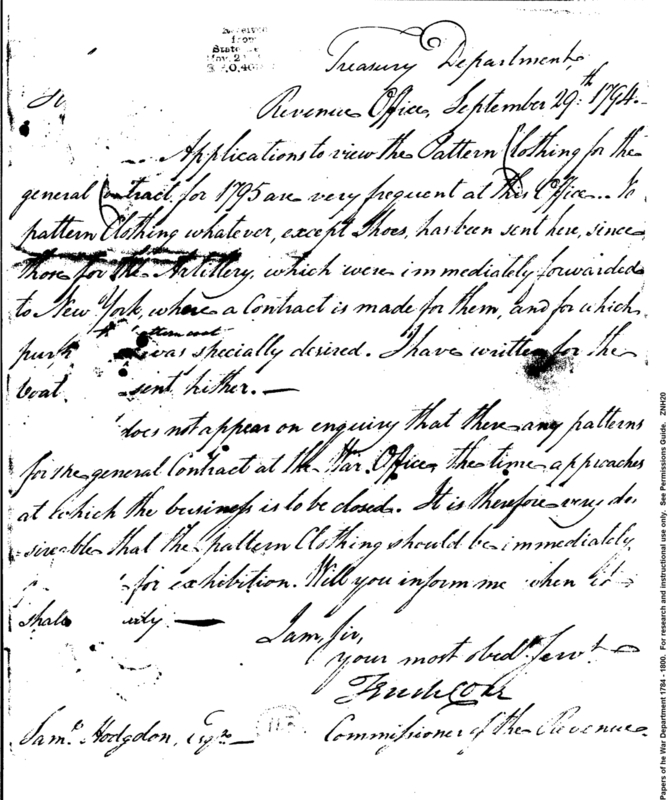 Received
from
State
Treasury Department,
Revenue Office, September 29th. 1794.
Applications to view the Pattern Clothing for the
general Contract, for 1795 are very frequent at this Office. No
pattern Clothing whatever, except Shoes, has been sent here, since
those for the Artillery, which were immediately forwarded
to New York, where a Contract is made for them, and for which
was specially desired. I have written for the
sent hither.
does not appear on enquiry that there any patterns
for the general Contract at the War Office, the time approaches
at which the business is to be closed. It is therefore very de
sireable that the pattern Clothing should be immediately
for exhibition. Will you inform me when it
shall
I am, Sir,
your most obedt. Servt.
Tench Coxe
Saml. Hodgdon, Esqr.
Commissioner of the Revenue.
Papers of he War Department 1784 - 1800. For research and instructional use only. See Permissions Guide. ZNH20